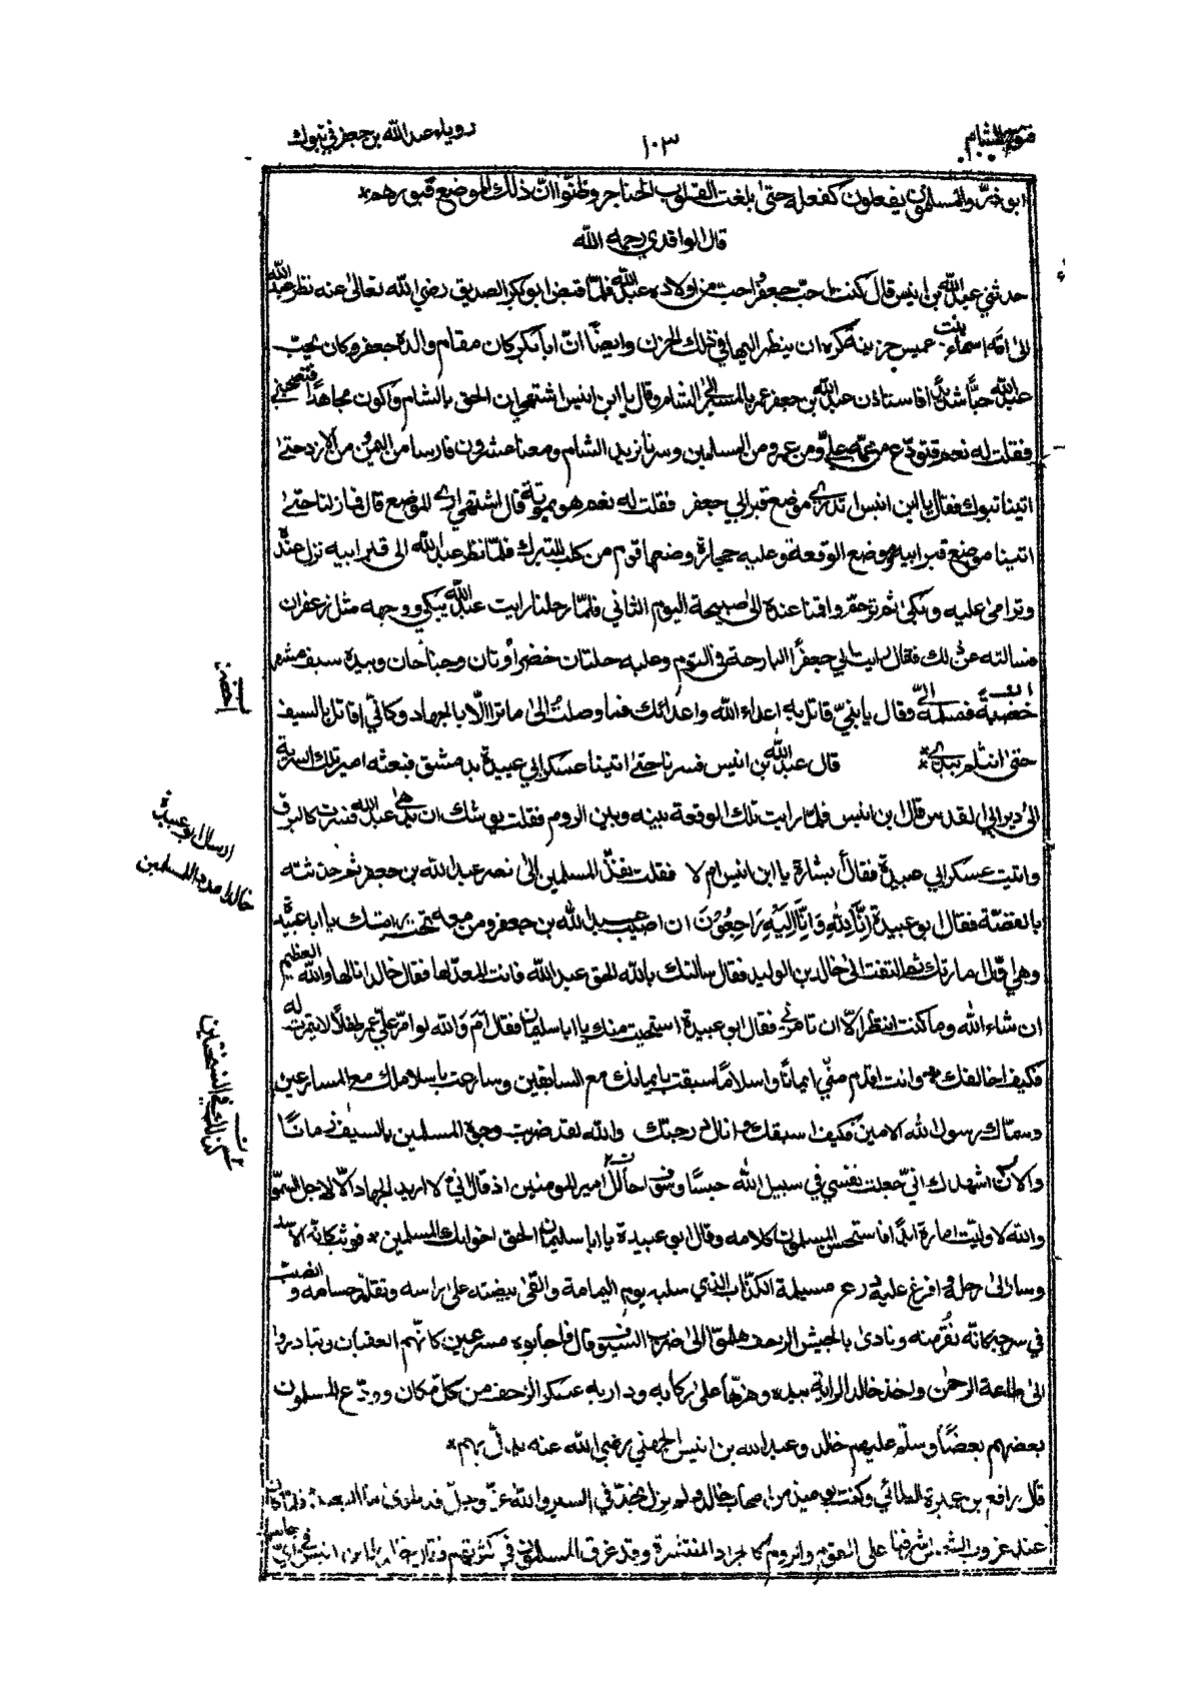 فتوح الشام
١٠٣
رويا عبد الله بن جعفر في تبوك
ابو ذر والمسلمون يفعلون كفعله حتى بلغت القلوب الحناجر وظنوا ان ذلك الموضع قبورهم*
قال الواقدي رحمه الله
حدثني عبد الله بن انيس قال كنت احب جعفرا واحب من اولاده عبد الله فلما قبض ابو بكر الصديق رضي الله تعالى عنه نظر عبد الله
الى امه اسماء بنت عميس حزينة فكره ان ينظر اليها في ذلك الحزن وايضا ان ابا بكر كان مقام والده جعفر وكان يحب
عبد الله حبا شديدا فاستاذن عبد الله بن جعفر عمر بالمسير الى الشام وقال يا ابن انيس اشتهي ان الحق بالشام واكون مجاهدا فتصحبني
فقلت له نعم فتودع من عمه علي ومن عمر ومن المسلمين وسرنا نريد الشام ومعنا عشرون فارسا من اليمن من الازد حتى
اتينا تبوك فقال يا ابن انيس اتدري موضع قبر ابي جعفر فقلت له نعم هو بموتة قال اشتهي ارى الموضع قال فما زلنا حتى
اتينا موضع قبر ابيه وموضع الوقعة وعليه حجارة وضعها قوم من كلب للتبرك فلما نظر عبد الله الى قبر ابيه نزل عنده
وترامى عليه وبكى ثم ترحم واقمنا عنده الى صبيحة اليوم الثاني فلما رحلنا رايت عبد الله يبكي ووجهه مثل زعفران
فسالته عن ذلك فقال رايت ابي جعفرا البارحة في النوم وعليه حلتان خضراوتان وجناحان وبيده سيف مشهر
فسلمه الي وقال يا بني قاتل به اعداء الله واعدائك فما وصلت الى ما ترا الا بالجهاد وكاني اقاتل بالسيف
حتى انثلم بيدي* قال عبد الله بن انيس فسرنا حتى اتينا عسكر ابي عبيدة بدمشق فبعثه امير تلك السرية
الى دير ابي القدس قال ابن انيس فلما رايت تلك الوقعة بينه وبين الروم فقلت يوشك ان عبد الله فسرت كالبرق
واتيت عسكر ابي عبيدة فقال ابشارة يا ابن انيس ام لا فقلت نفذ المسلمين الى نصر عبد الله بن جعفر ثم حدثته
بالقصة فقال ابو عبيدة انا لله وانا اليه راجعون ان اصيب عبد الله بن جعفر ومن معه تحت رايتك يا ابا عبيدة
وهي اول امارتك ثم التفت الى خالد بن الوليد فقال سالتك بالله الحق عبد الله فانت المعد لها فقال خالد انا لها والله العظيم
ان شاء الله وما كنت انتظر الا ان تامرني فقال ابو عبيدة استحييت منك يا ابا سليمان فقال اما والله لو امر علي عمر طفلا لايتمرت له
فكيف اخالفك وانت اقدم مني ايمانا واسلاما سبقت بايمانك مع السابقين وسارعت باسلامك مع المسارعين
وسماك رسول الله الامين فكيف اسبقك وانال درجتك والله لقد ضربت وجوه المسلمين بالسيف زمانا
والان اشهدك اني جعلت نفسي في سبيل الله حبسا وسوف امير المومنين اذ قال اني لا اريد الجهاد الا لاجل السمو
والله لا وليت امارة ابدا فاستحسن المسلمون كلامه وقال ابو عبيدة يا ابا سليمان الحق اخوانك المسلمين* فوثب كانه الاسد
وسار الى رحله وافرغ عليه درع مسيلمة الكذاب الذي سلبه يوم اليمامة والقى بيضته على راسه وتقلد حسامه وانصب
في سرجه كانه ونادى بالجيش الزحف هلموا الى ضرب السيوف قال فاجابوه مسرعين كانهم العقبان وتبادروا
الى طاعة الرحمن واخذ خالد الراية بيده وهزها على ركابه ودار به عسكر الزحف من كل مكان وودع المسلمون
بعضهم بعضا وسلم عليهم خالد وعبد الله بن انيس الجهني رضي الله عنه يدل بهم*
قال رافع بن عميرة الطائي وكنت يوميذ من اصحاب خالد ولم يزل نجد في السير والله عز وجل قد طوى لنا البعيد فلما كان
عند غروب الشمس اشرفنا على القوم والروم كالجراد المنتشرة وقد غرق المسلمون في كثرتهم
ارسال ابو عبيدة
خالدا مدد المسلمين